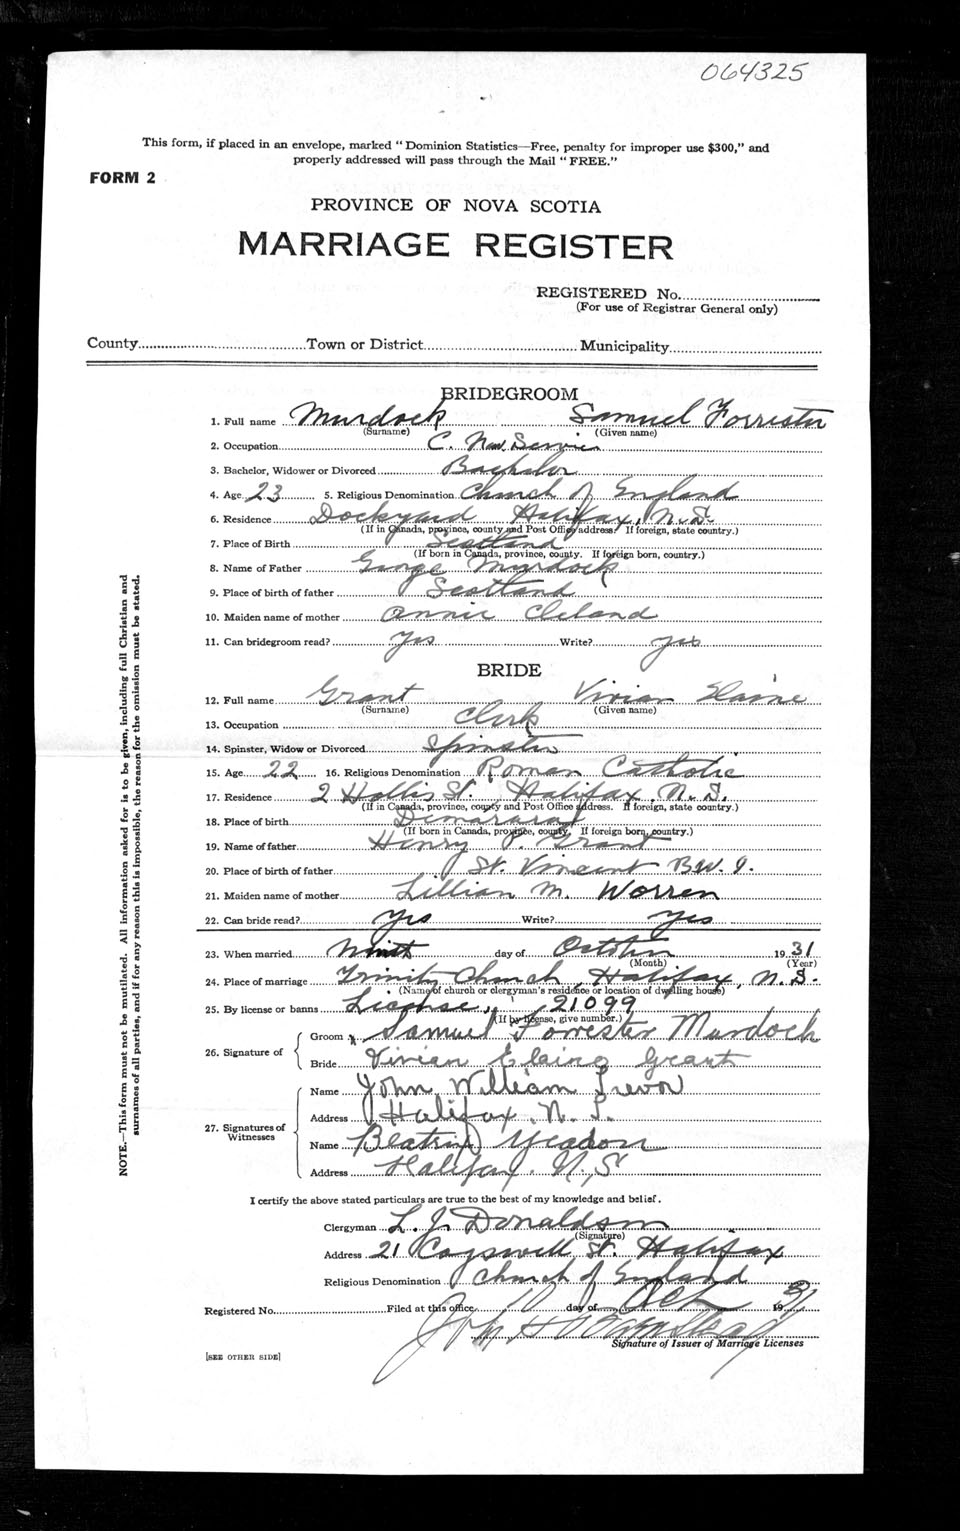 064325
This form, if placed in an envelope, marked "Dominion Statistics—Free, penalty for improper use $300," and
properly addressed will pass through the Mail "FREE."
FORM 2
PROVINCE OF NOVA SCOTIA
MARRIAGE REGISTER
REGISTERED No.
(For use of Registrar General only)
County Town or District Municipality
BRIDEGROOM
1. Full name Murdock Samuel Forrester
(Surname) (Given name)
2. Occupation C. Nav. Service
3. Bachelor, Widower or Divorced Bachelor
4. Age 23 5. Religious Denomination Church of England
6. Residence Dockyard Halifax, N.S.
(If in Canada, province, county and Post Office address. If foreign, state country.)
7. Place of Birth Scotland
(If born in Canada, province, county. If foreign born, country.)
8. Name of Father George Murdock
9. Place of birth of father Scotland
10. Maiden name of mother Annie Cleland
11. Can bridegroom read? Yes Write? Yes
BRIDE
12. Full name Grant Vivian Elaine
(Surname) (Given name)
13. Occupation Clerk
14. Spinster, Widow or Divorced Spinster
15. Age 22 16. Religious Denomination Roman Catholic
17. Residence 2 Hollis St. Halifax, N.S.
(If in Canada, province, county and Post Office address. If foreign, state country.)
18. Place of birth Demarara
(If born in Canada, province, county. If foreign born, country.)
19. Name of father Henry P. Grant
20. Place of birth of father St. Vincent B.W.I.
21. Maiden name of mother Lillian M. Worren
22. Can bride read? Yes Write? Yes
23. When married Ninth day of October 1931
(Month) (Year)
24. Place of marriage Trinity Church, Halifax, N.S.
(Name of church or clergyman's residence or location of dwelling house)
25. By license or banns License, 21099
(If by license, give number.)
26. Signature of
Groom x Samuel Forrester Murdoch
Bride Vivian Elaine Grant
27. Signatures of Witnesses
Name John William Trevor
Address Halifax N.S.
Name Beatrix Yeadon
Address Halifax, N.S
I certify the above stated particulars are true to the best of my knowledge and belief.
Clergyman L. J. Donaldson
(Signature)
Address 21 Cogswell St. Halifax
Religious Denomination Church of England
Registered No. Filed at this office 10 day of Oct 1931
Signature of Issuer of Marriage Licenses
[SEE OTHER SIDE]
NOTE.—This form must not be mutilated. All information asked for is to be given, including full Christian and
surnames of all parties, and if for any reason this is impossible, the reason for the omission must be stated.